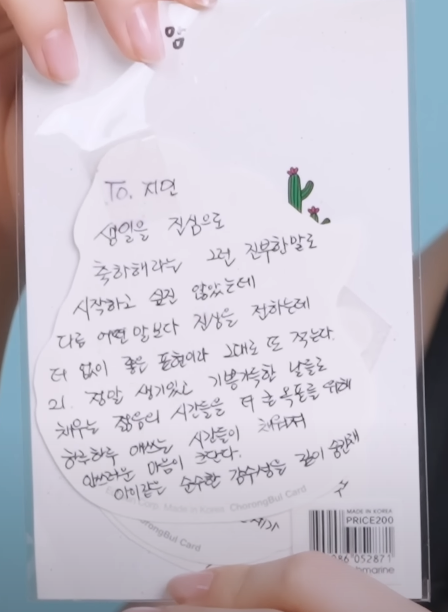 To. 지연
생일을 진심으로
축하해라는 그런 진부한말로
시작하고 싶진 않았는데
다른 어떤 말보다 진심을 전하는데
더 없이 좋은 표현이라 그대로 또 적는다.
21. 정말 생기있고 기쁨가득한 날들로
채우는 젊음의 시간들을 더 큰 목표를 위해
하루하루 애쓰는 시간들이 채워져
안쓰러운 마음이 크단다.
아이같은 순수한 감수성을 같이
Made in Korea ChorongBul Card
ChorongBul Card
MADE IN KOREA
PRICE200
086 052871
marine